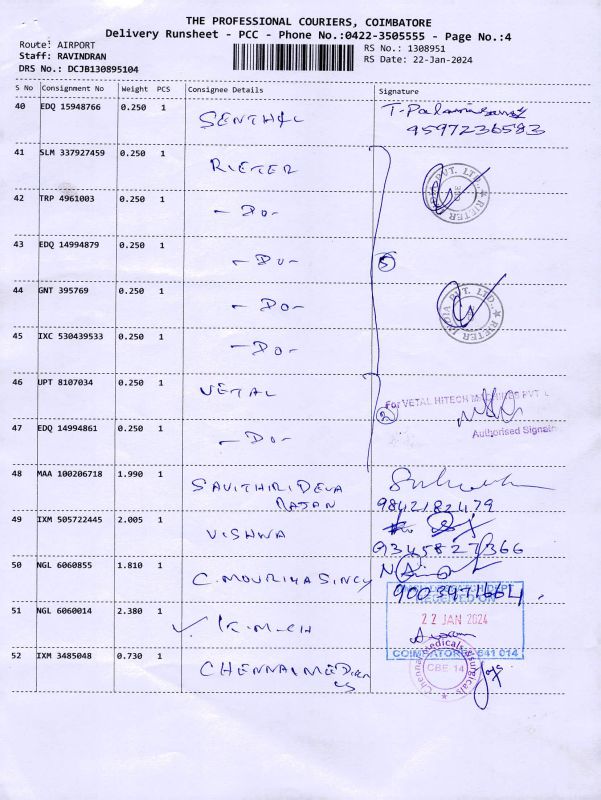 THE PROFESSIONAL COURIERS, COIMBATORE
Delivery Runsheet - PCC - Phone No.:0422-3505555 - Page No.:4
Route: AIRPORT
RS No.: 1308951
Staff: RAVINDRAN
RS Date: 22-Jan-2024
DRS No.: DCJB130895104
S No Consignment No Weight PCS Consignee Details Signature
40 EDQ 15948766 0.250 1 SENTHIL
9597236583
41 SLM 337927459 0.250 1 RIETER
42 TRP 4961003 0.250 1 - Do -
43 EDQ 14994879 0.250 1 - Do -
5
44 GNT 395769 0.250 1 - Do -
45 IXC 530439533 0.250 1 - Do -
46 UPT 8107034 0.250 1 VETAL
For VETAL HITECH MACHINES PVT L
2
47 EDQ 14994861 0.250 1 - Do -
Authorised Signato
48 MAA 100206718 1.990 1 SAVITHIRI DEVA
RAJAN
9842182479
49 IXM 505722445 2.005 1 VISHWA
9345827366
50 NGL 6060855 1.810 1 C. MOURIYA
9003971664
51 NGL 6060014 2.380 1 K.M.CH
22 JAN 2024
COIMBATORE 641 014
52 IXM 3485048 0.730 1 CHENNAI MEDICA
LS
Chennai Medicals Surgicals
CBE 14